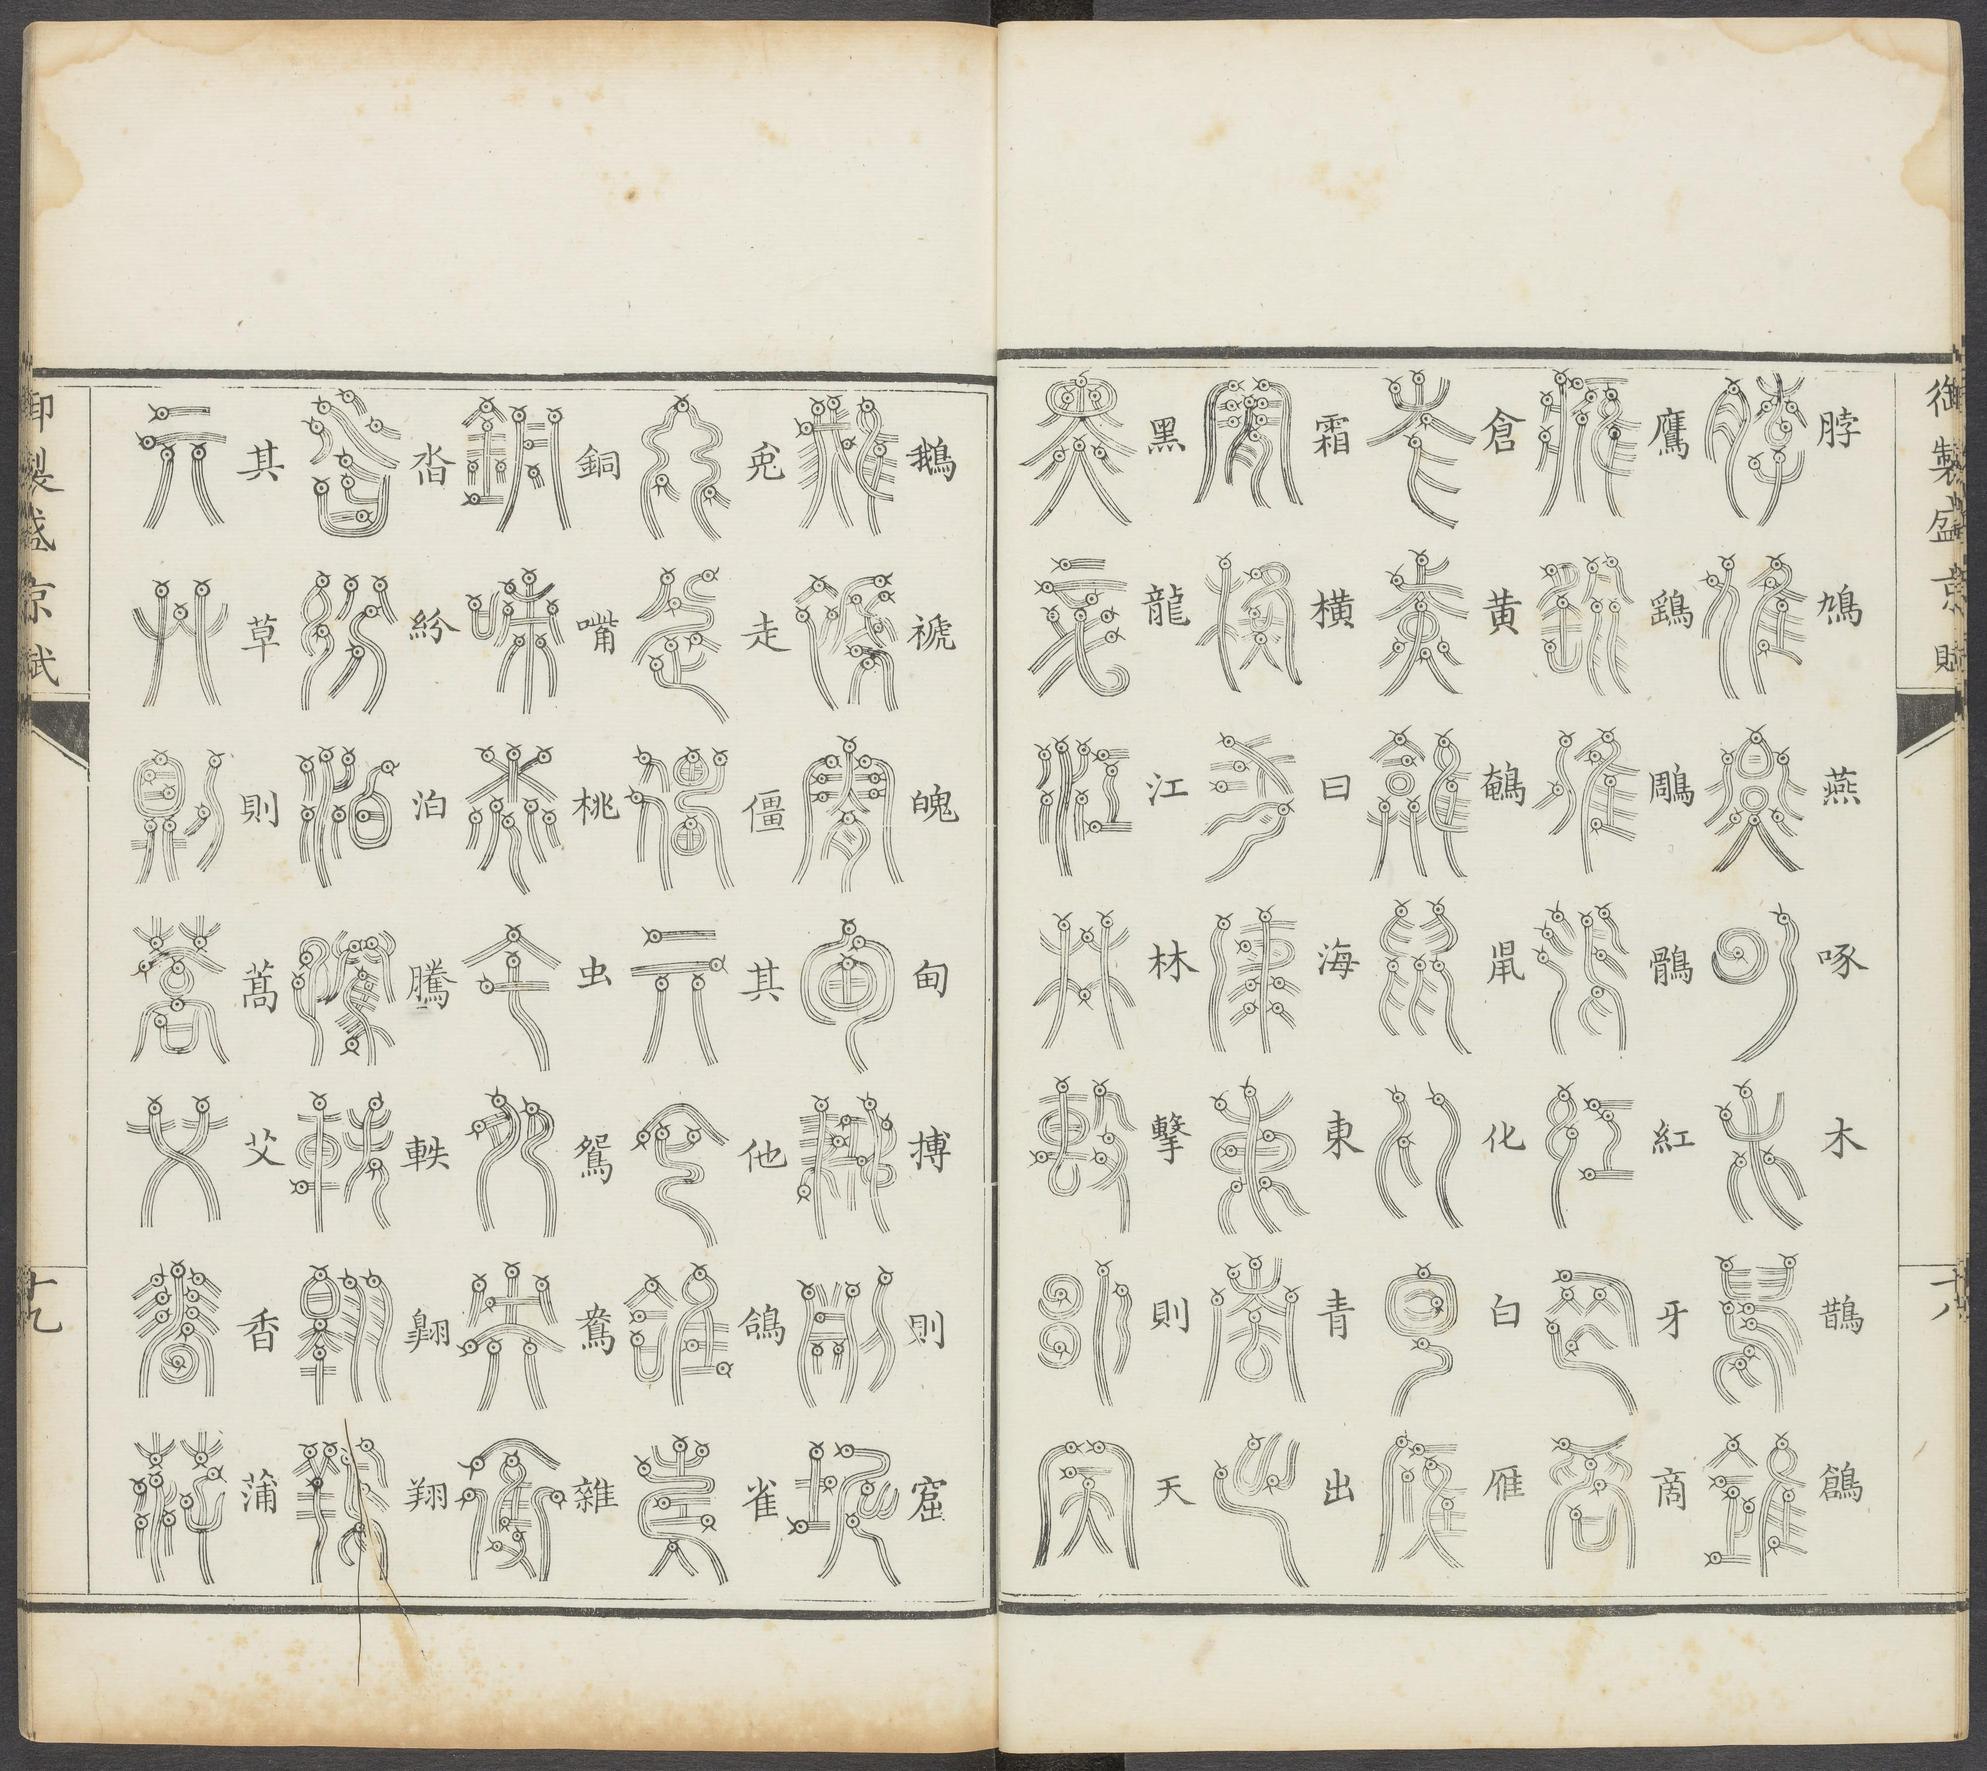 御製盛京賦
十八
脖鳩燕啄木鵲鶬
鷹鷂鵰鶻紅牙商
倉黄鵪鼠化白雁
霜橫曰海東青出
黑龍江林擊則天
鵝褫魄甸搏則窟
兔走僵其他鴿雀
銅嘴桃虫鴛鴦雜
沓紛泊騰軼翺翔
其草則蒿艾香蒲
御製盛京賦
十九